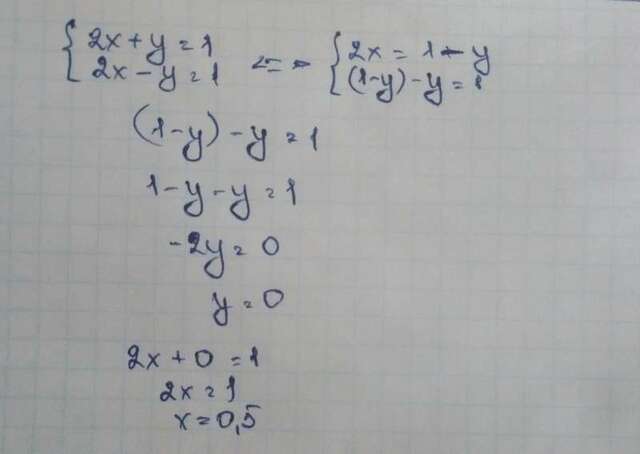 {2x+y=1 <=> {2x=1-y
2x-y=1 (1-y)-y=1
(1-y)-y=1
1-y-y=1
-2y=0
y=0
2x+0=1
2x=1
x=0,5